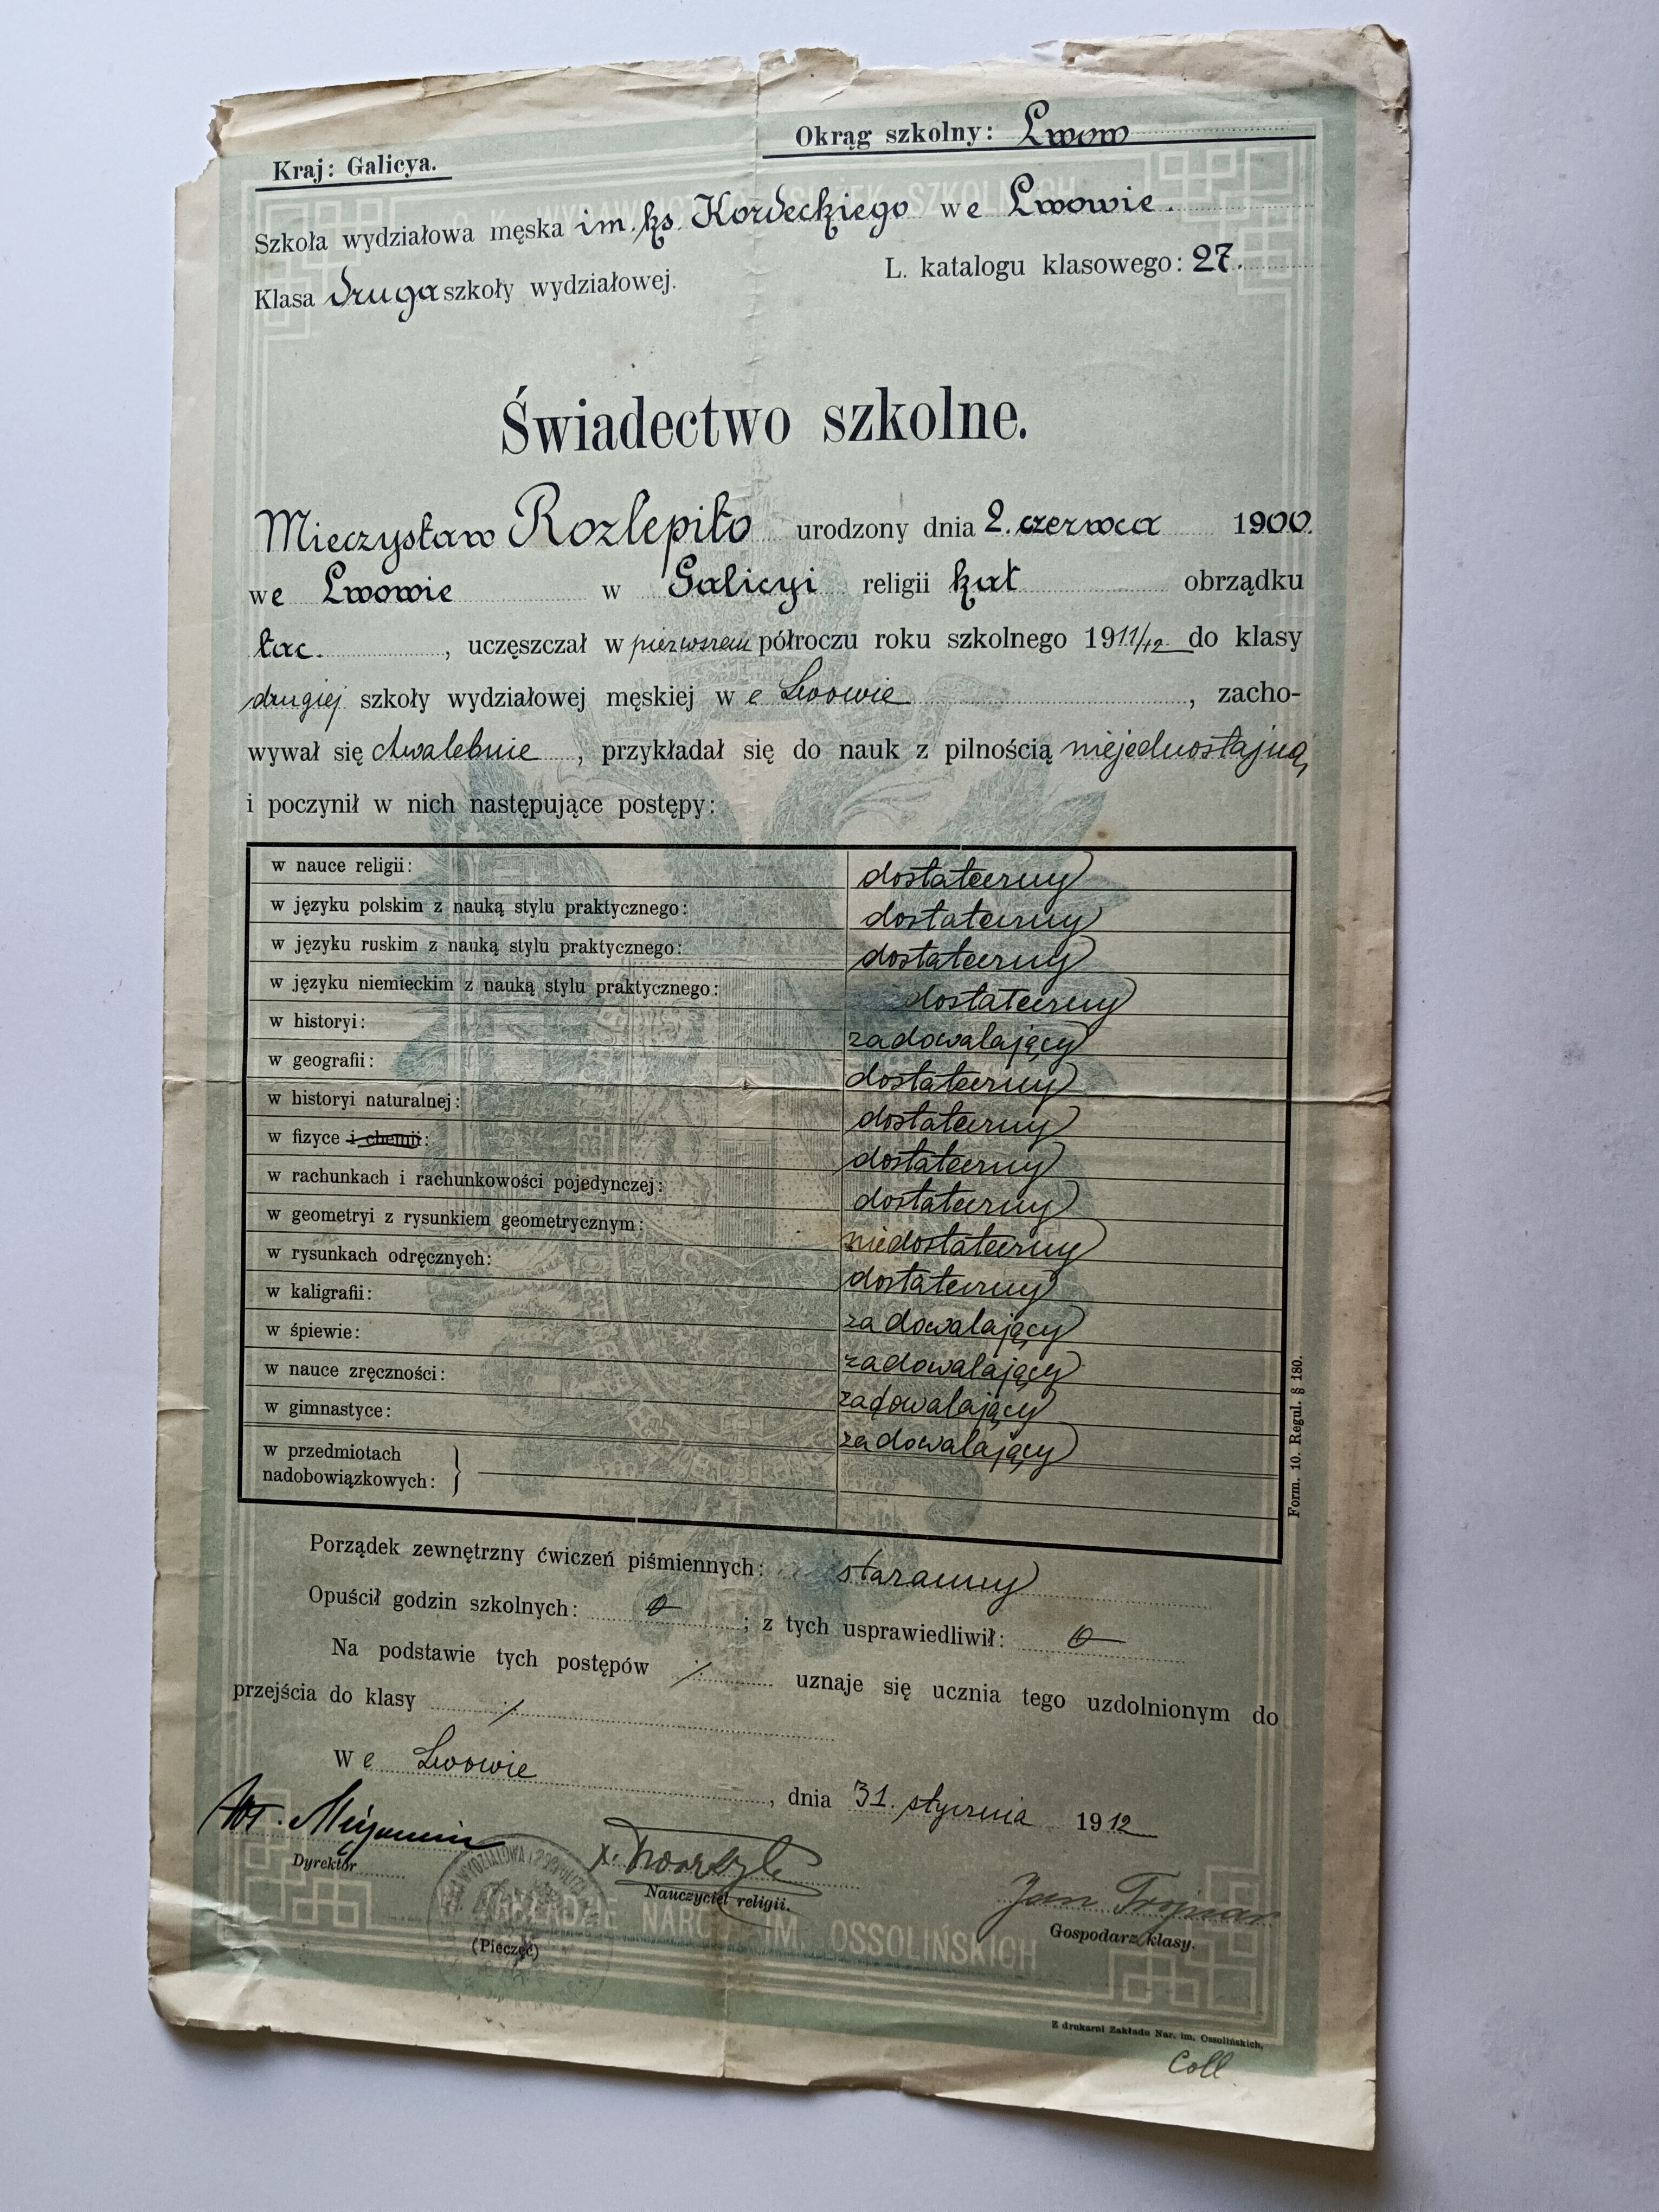 Kraj: Galicya.
Okrąg szkolny: Lwow
Szkoła wydziałowa męska im. ks. Kordeckiego we Lwowie.
Klasa druga szkoły wydziałowej.
L. katalogu klasowego: 27.
Świadectwo szkolne.
Mieczysław Rozlepiło urodzony dnia 2. czerwca 1900.
we Lwowie w Galicyi religii kat obrządku
łac. , uczęszczał w pierwszem półroczu roku szkolnego 1911/12 do klasy
drugiej szkoły wydziałowej męskiej we Lwowie , zacho-
wywał się chwalebnie , przykładał się do nauk z pilnością niejednostajną,
i poczynił w nich następujące postępy:
w nauce religii: dostateczny
w języku polskim z nauką stylu praktycznego: dostateczny
w języku ruskim z nauką stylu praktycznego: dostateczny
w języku niemieckim z nauką stylu praktycznego: dostateczny
w historyi: zadowalający
w geografii: dostateczny
w historyi naturalnej: dostateczny
w fizyce i chemii: dostateczny
w rachunkach i rachunkowości pojedynczej: dostateczny
w geometryi z rysunkiem geometrycznym: niedostateczny
w rysunkach odręcznych: dostateczny
w kaligrafii: zadowalający
w śpiewie: zadowalający
w nauce zręczności: zadowalający
w gimnastyce: zadowalający
w przedmiotach
nadobowiązkowych:
Form. 10. Regul. § 180.
Porządek zewnętrzny ćwiczeń piśmiennych: staranny
Opuścił godzin szkolnych: 0 ; z tych usprawiedliwił: 0
Na podstawie tych postępów uznaje się ucznia tego uzdolnionym do
przejścia do klasy
We Lwowie , dnia 31. stycznia 1912
Dyrektor
Nauczyciel religii.
Jan Trojnar
Gospodarz klasy.
(Pieczęć)
NAR IM. OSSOLIŃSKICH
Z drukarni Zakładu Nar. im. Ossolińskich,
Coll.